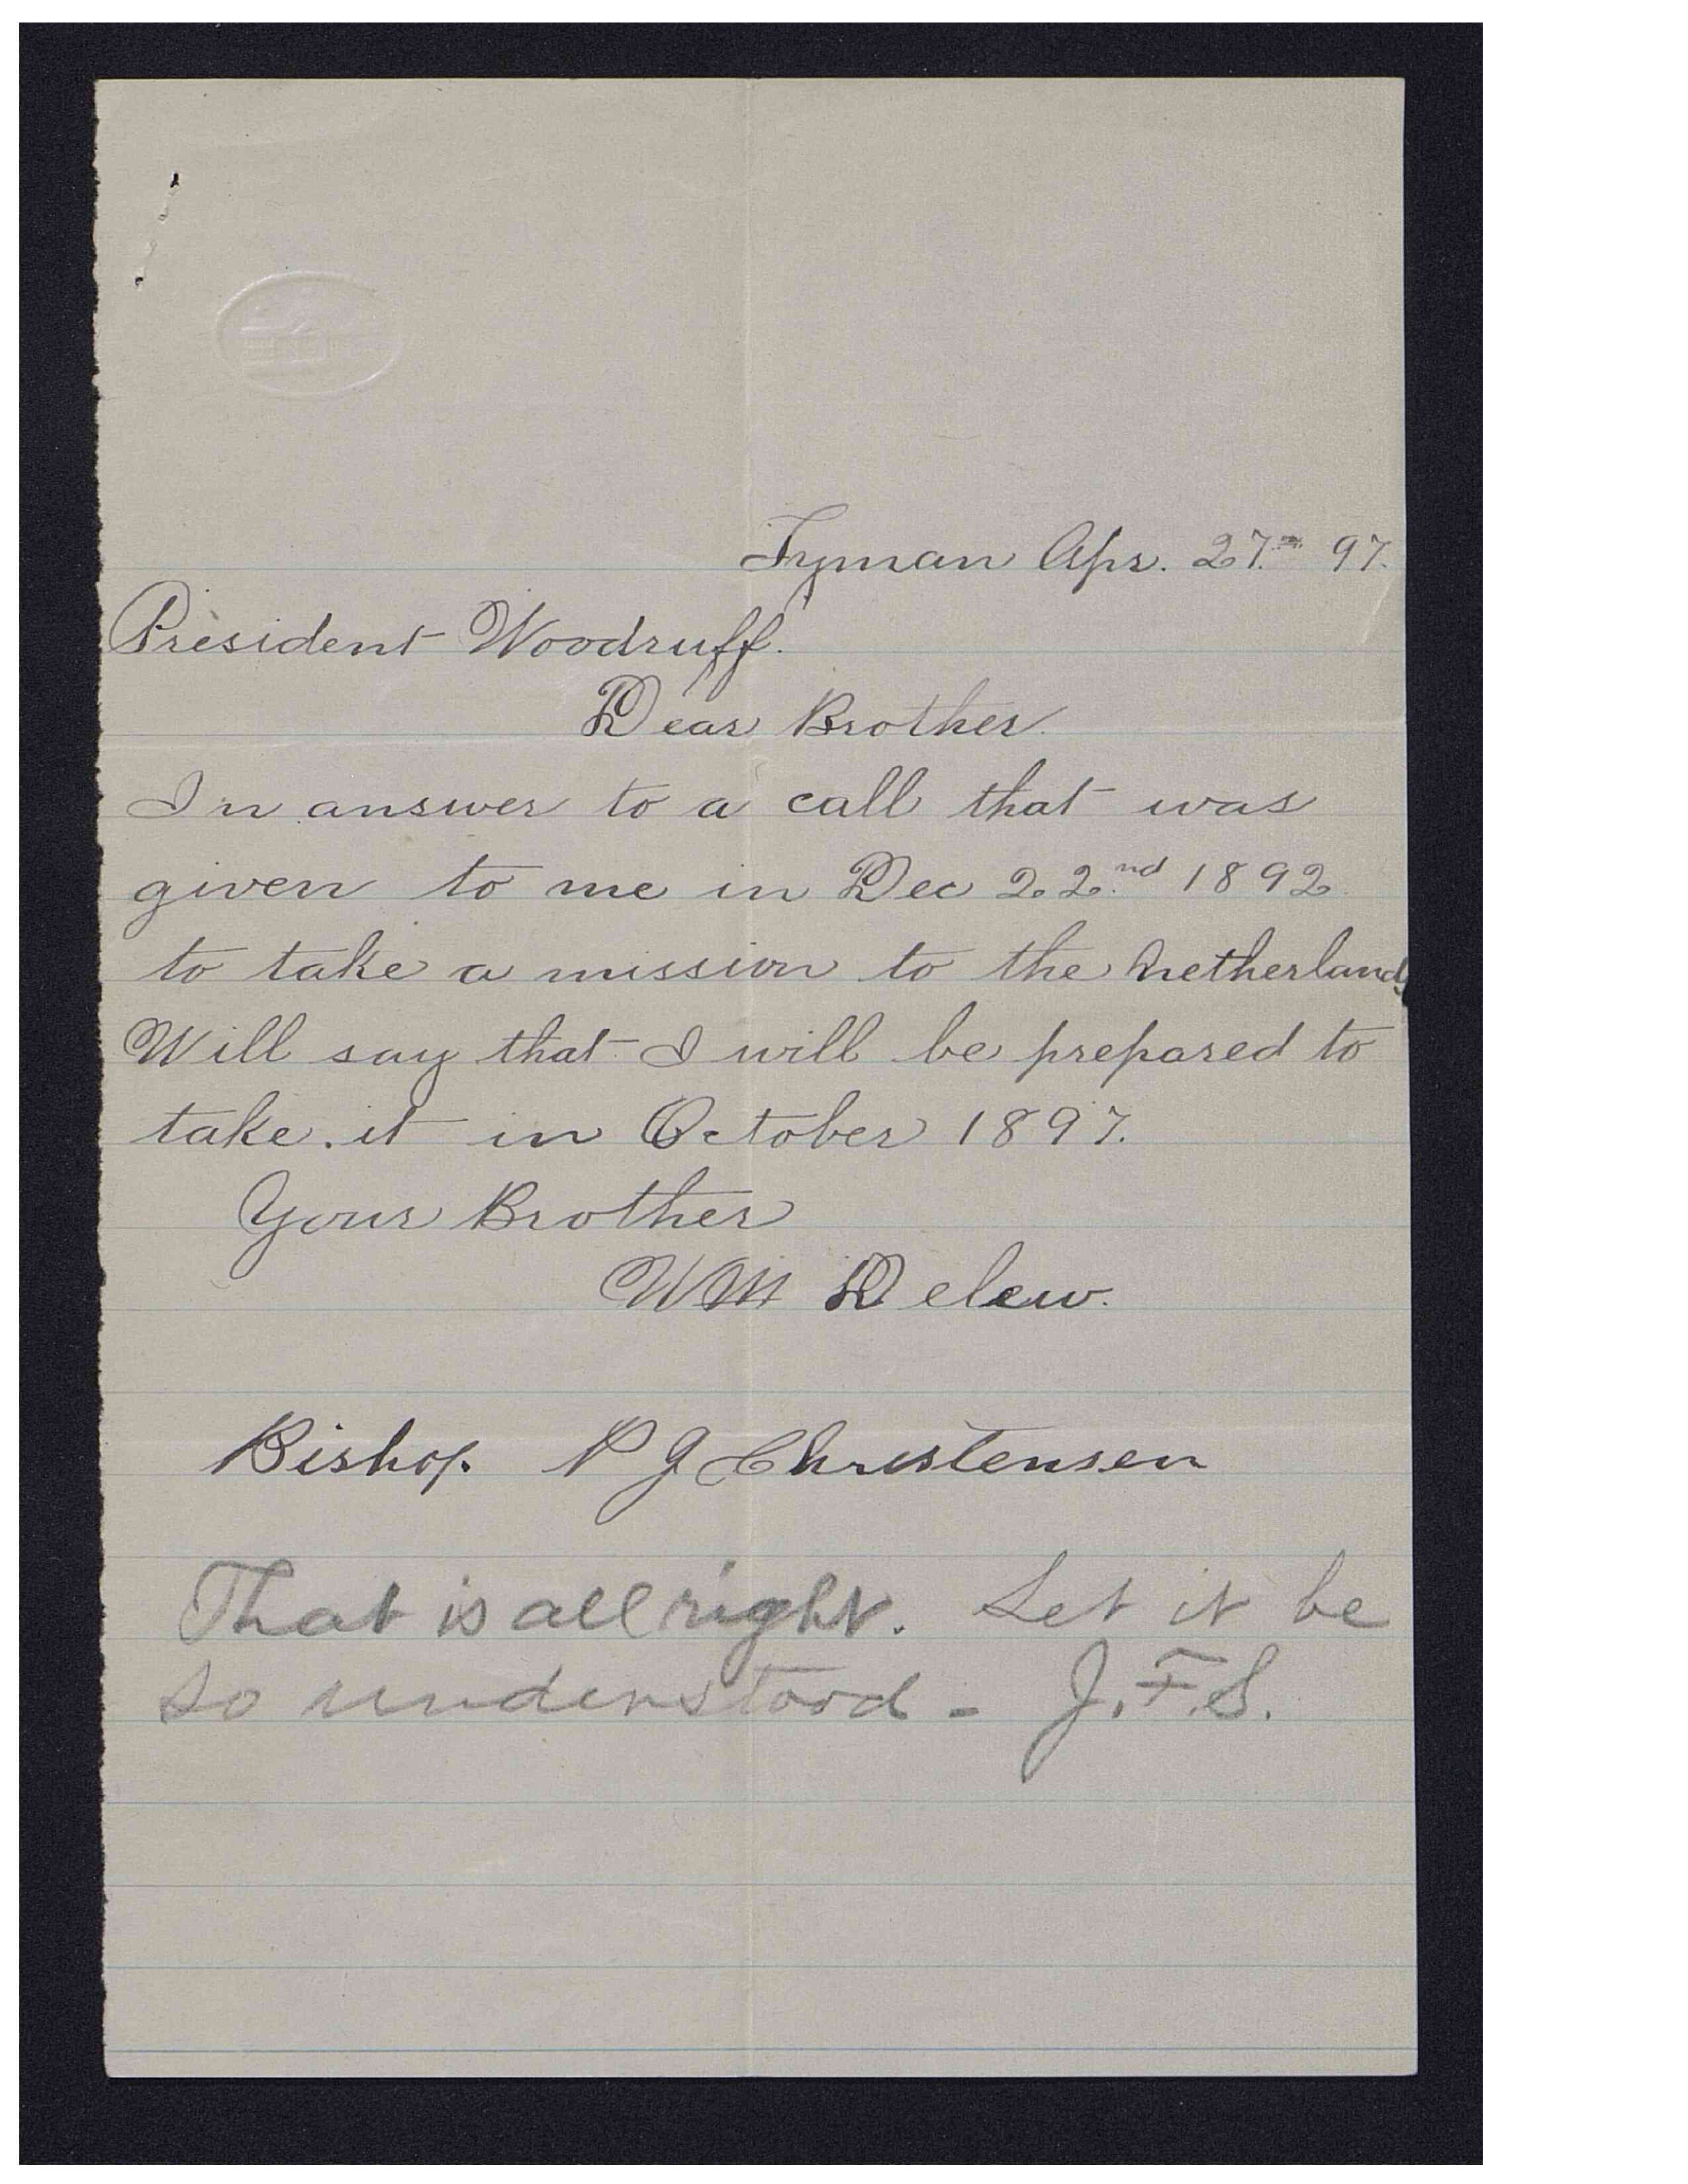 Lyman Apr. 27th 97.
President Woodruff.
Dear Brother.
In answer to a call that was
given to me in Dec 22nd 1892
to take a mission to the Netherlands
Will say that I will be prepared to
take it in October 1897.
Your Brother
WM Delew.
Bishop P J Christensen
That is all right. Let it be
so understood - J.F.S.